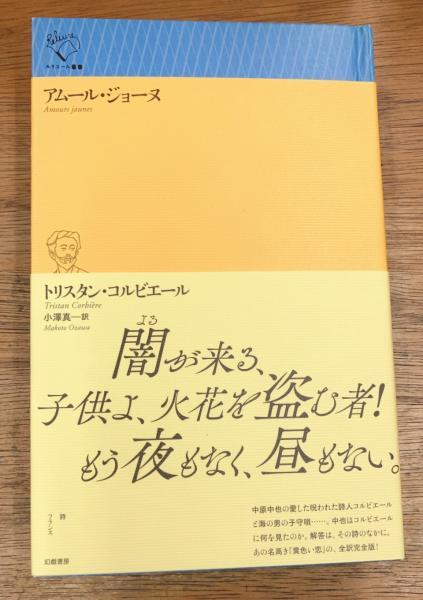 Reliure
ルリユール叢書
アムール・ジョーヌ
Amours jaunes
トリスタン・コルビエール
Tristan Corbière
小澤真─訳
Makoto Ozawa
よる
闇が来る、
子供よ、火花を盗む者!
もう夜もなく、昼もない。
中原中也の愛した呪われた詩人コルビエール
と海の男の子守唄……。中也はコルビエール
に何を見たのか。解答は、その詩のなかに。
あの名高き「黄色い恋」の、全訳完全版!
詩
フランス
幻戯書房